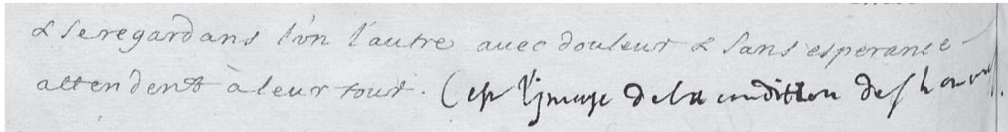 & se regardans l'vn l'autre avec douleur & sans esperance
attendent à leur tour. C'est l'jmage de la condition des homes.